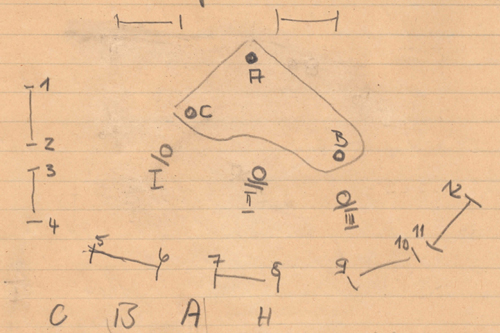 A
C
B
1
2
3
4
I/O
II/O
O/III
5 6 7 8 9 10 11 12
C B A H